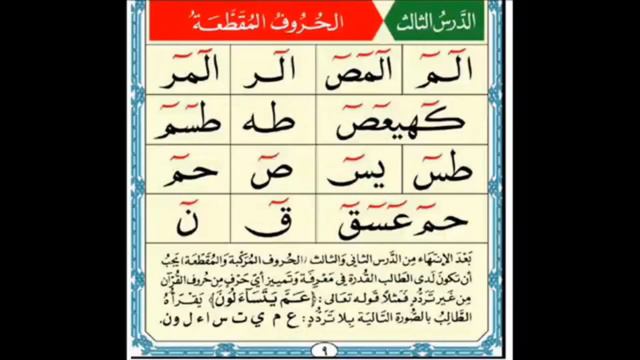 الدَّرسُ الثَّالِث الحُرُوفُ المُقَطَّعَةُ
الٓمٓ الٓمٓصٓ الٓر الٓمٓر
كٓهيعٓصٓ طه طسٓمٓ
طسٓ يسٓ صٓ حمٓ
حمٓ عٓسٓقٓ قٓ نٓ
بَعْدَ الِانْتِهَاءِ مِنَ الدَّرسِ الثَّانِي وَالثَّالِث /الحُروفِ المُرَكَّبَةِ وَالمُقَطَّعَةِ/ يَجِبُ
أَن تَكُونَ لَدَى الطَّالِبِ القُدرَةُ فِي مَعْرِفَةِ وَتَمييزِ أَيِّ حَرْفٍ مِن حُروفِ القُرآنِ
مِن غَيرِ تَرَدُّدٍ فَمَثَلاً قَولُه تَعالى: ﴿عَمَّ يَتَسَآءَلُونَ﴾ يَقْرَأُهُ
الطَّالِبُ بِالصُّورَةِ التَّالِيَةِ بِلا تَرَدُّدٍ: ع م ي ت س ا ء ل و ن.
٩